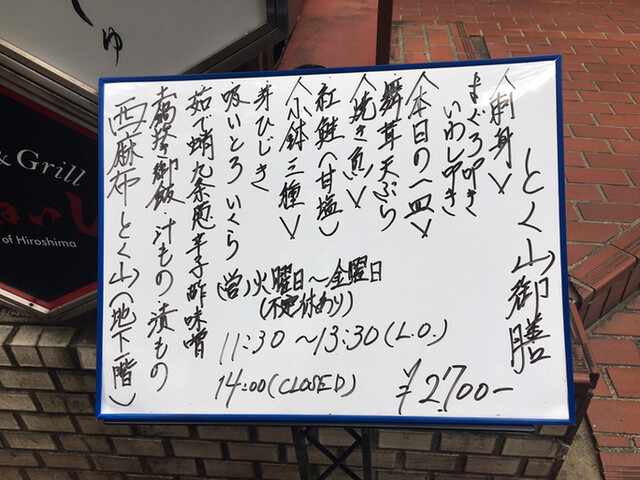 とく山御膳
〈刺身〉
まぐろ叩き
いわし叩き
〈本日の一皿〉
舞茸天ぷら
〈焼き魚〉
紅鮭(甘塩)
〈小鉢三種〉
芽ひじき
吸いとろいくら
茹で蛸九条葱辛子酢味噌
土鍋釜御飯・汁もの・漬もの
西麻布とく山(地下一階)
(営)火曜日～金曜日
(不定休あり)
11:30～13:30(L.O.)
14:00(CLOSED)
¥2700-
しゅ
& Grill
of Hiroshima